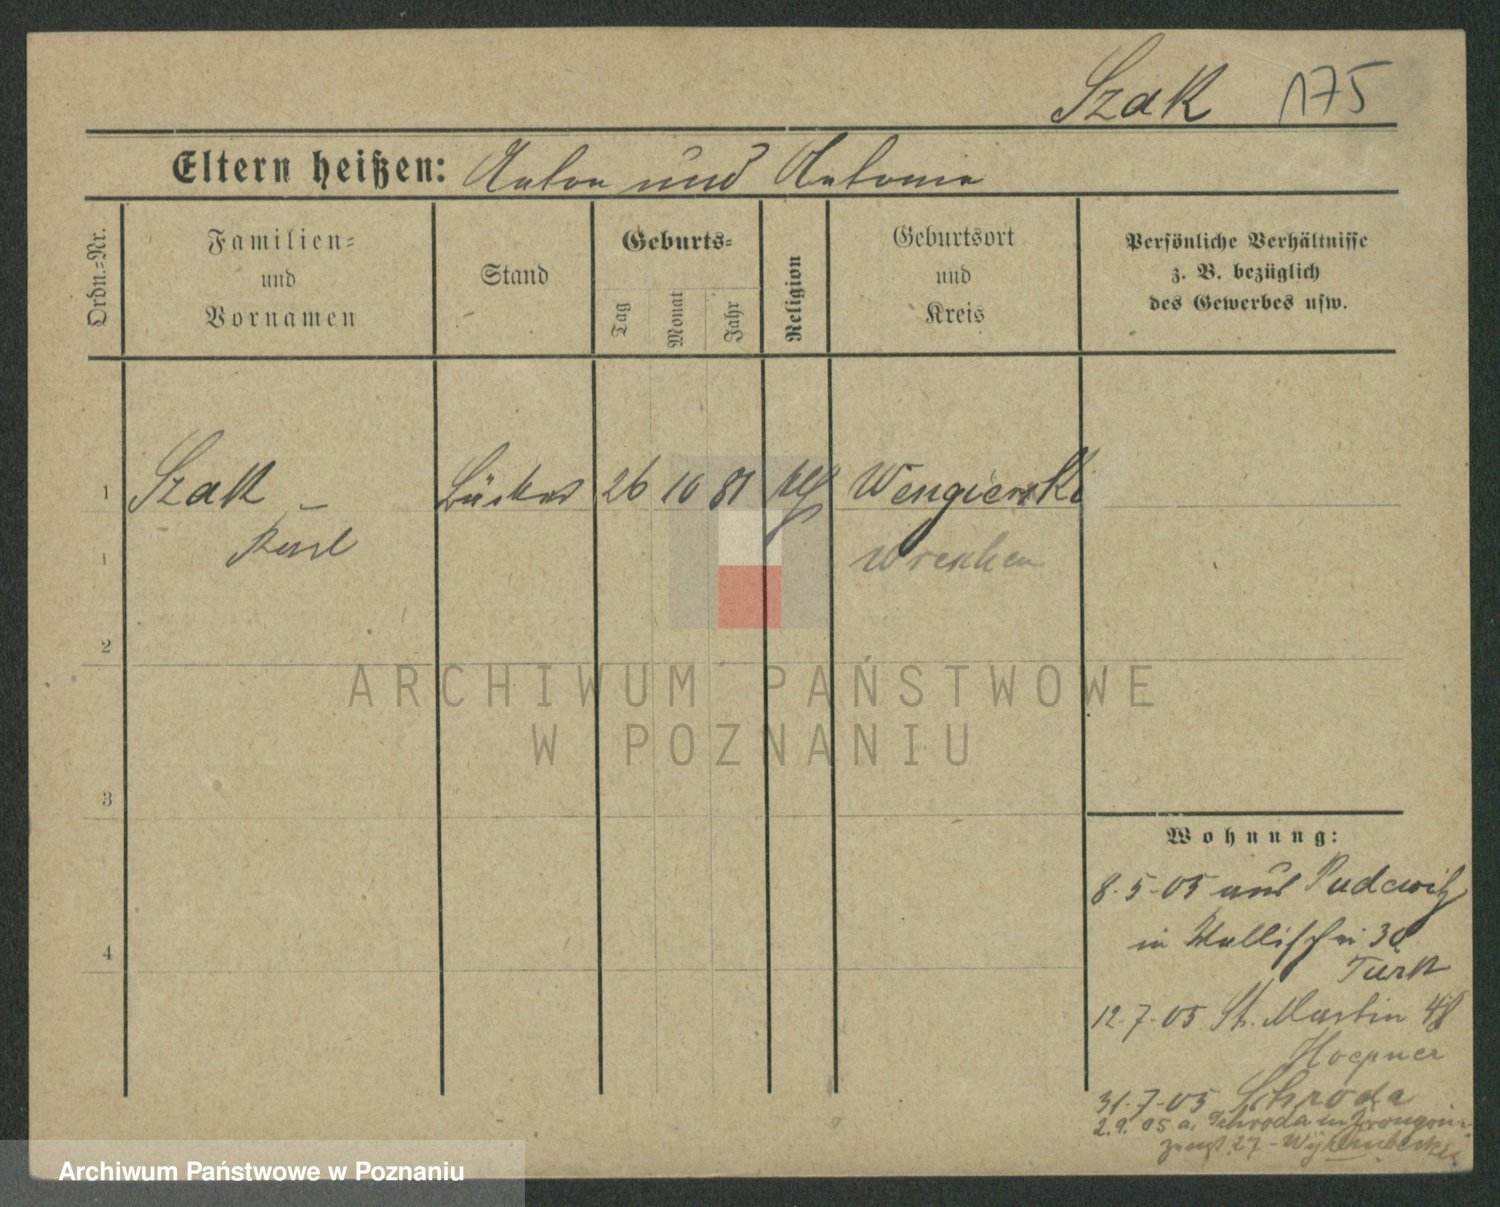 Szak 175
Eltern heißen: Anton und Antonie
Ordn.=Nr.
Familien=
und
Vornamen
Stand
Geburts=
Tag
Monat
Jahr
Religion
Geburtsort
und
Kreis
Persönliche Verhältnisse
z. B. bezüglich
des Gewerbes usw.
1 Szak – 26 10 81 Wengierski
1 Karl Wreschen
2
3
4
Wohnung:
8.5.05 aus Pudewitz
in Wallischei 30
Türk
12.7.05 St. Martin 48
Hoepner
31.7.05 Schroda
2.9.05 a. Schroda in
27
ARCHIWUM PAŃSTWOWE
W POZNANIU
Archiwum Państwowe w Poznaniu